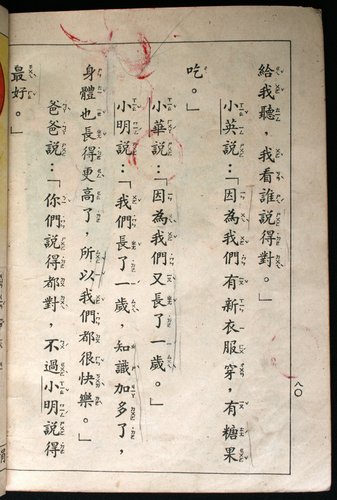 給我聽，我看誰說得對。」
小英說：「因為我們有新衣服穿，有糖果
吃。」
小華說：「因為我們又長了一歲。」
小明說：「我們長了一歲，知識加多了，
身體也長得更高了，所以我們都很快樂。」
爸爸說：「你們說得都對，不過小明說得
最好。」
八〇